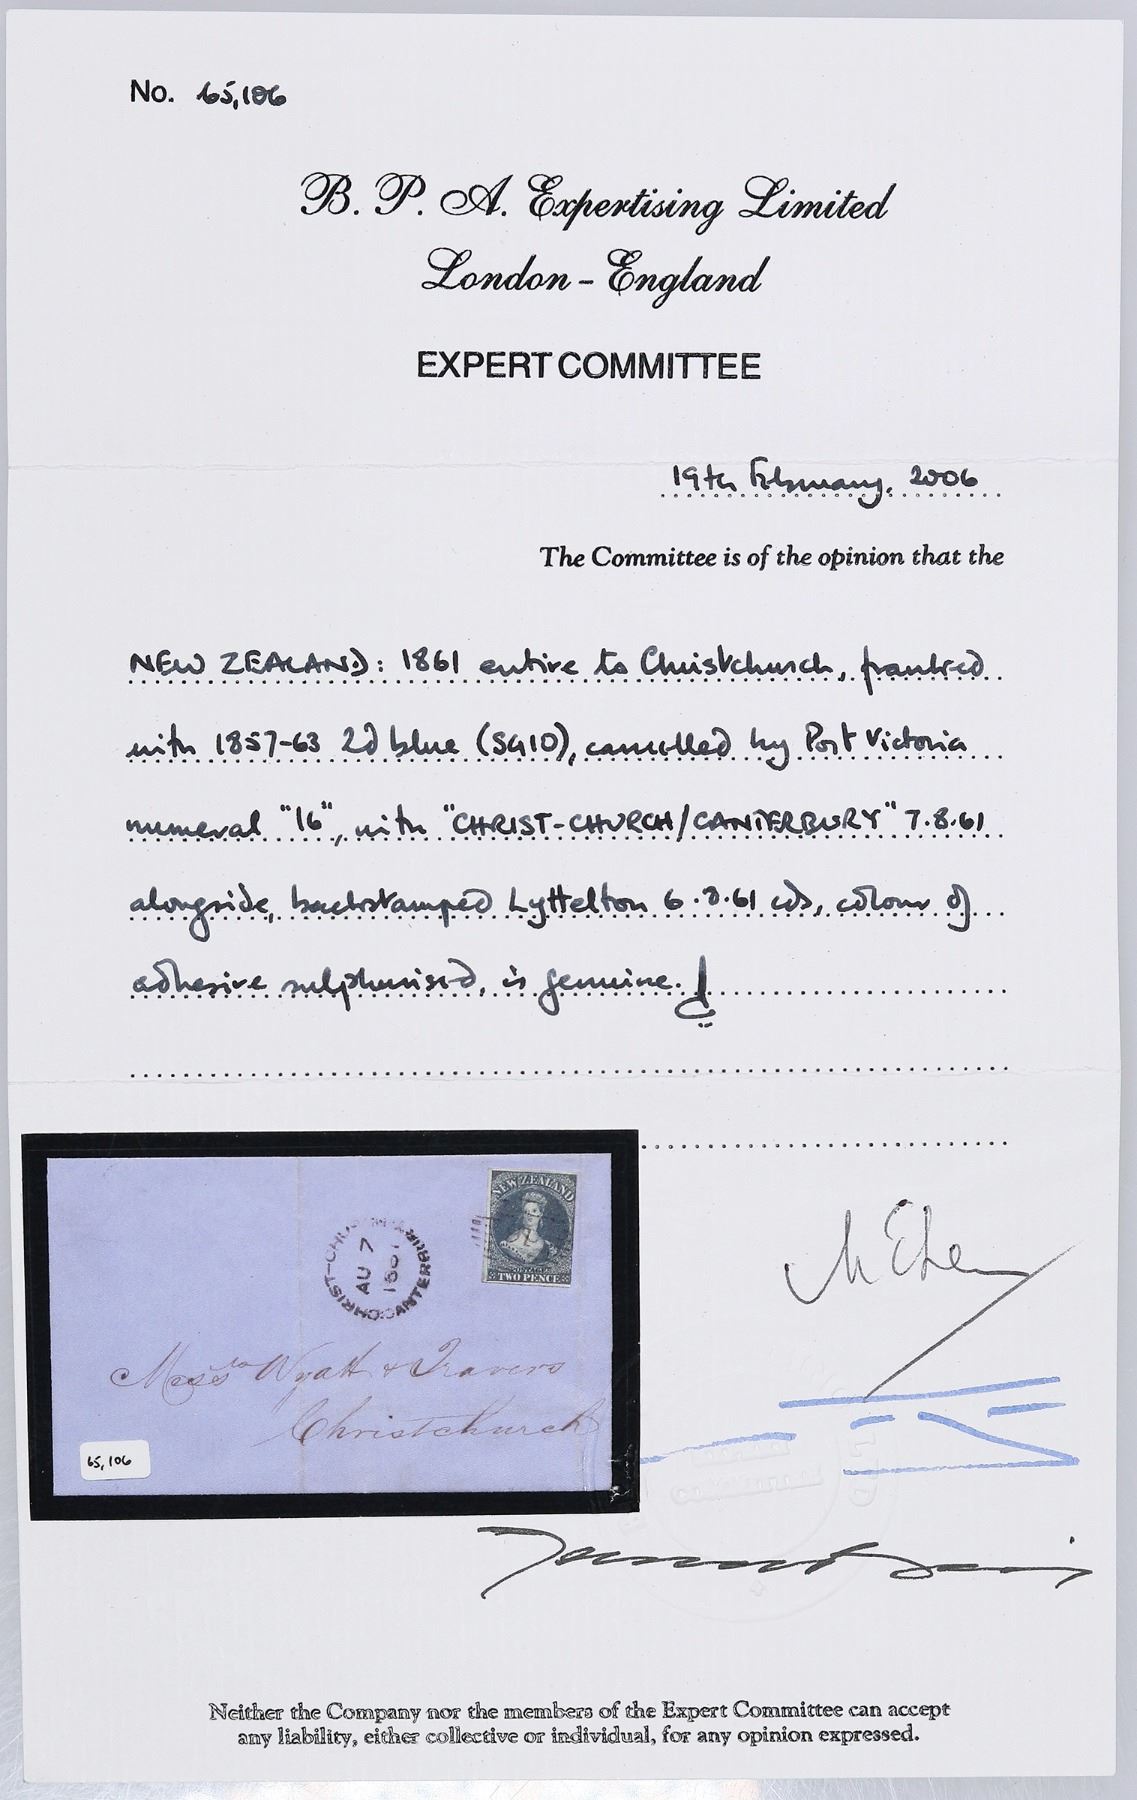 No. 65,106
B. P. A. Expertising Limited
London - England
EXPERT COMMITTEE
19th February, 2006
The Committee is of the opinion that the
NEW ZEALAND: 1861 entire to Christchurch, franked
with 1857-63 2d blue (SG10), cancelled by Port Victoria
numeral "16", with "CHRIST-CHURCH/CANTERBURY" 7.8.61
alongside, backstamped Lyttelton 6.8.61 cds, colour of
adhesive sulphurised, is genuine.
NEW ZEALAND
TWO PENCE
CHRIST-CHURCH
AU 7
1861
CANTERBURY
Messrs Wyatt & Travers
Christchurch
65,106
Neither the Company nor the members of the Expert Committee can accept
any liability, either collective or individual, for any opinion expressed.